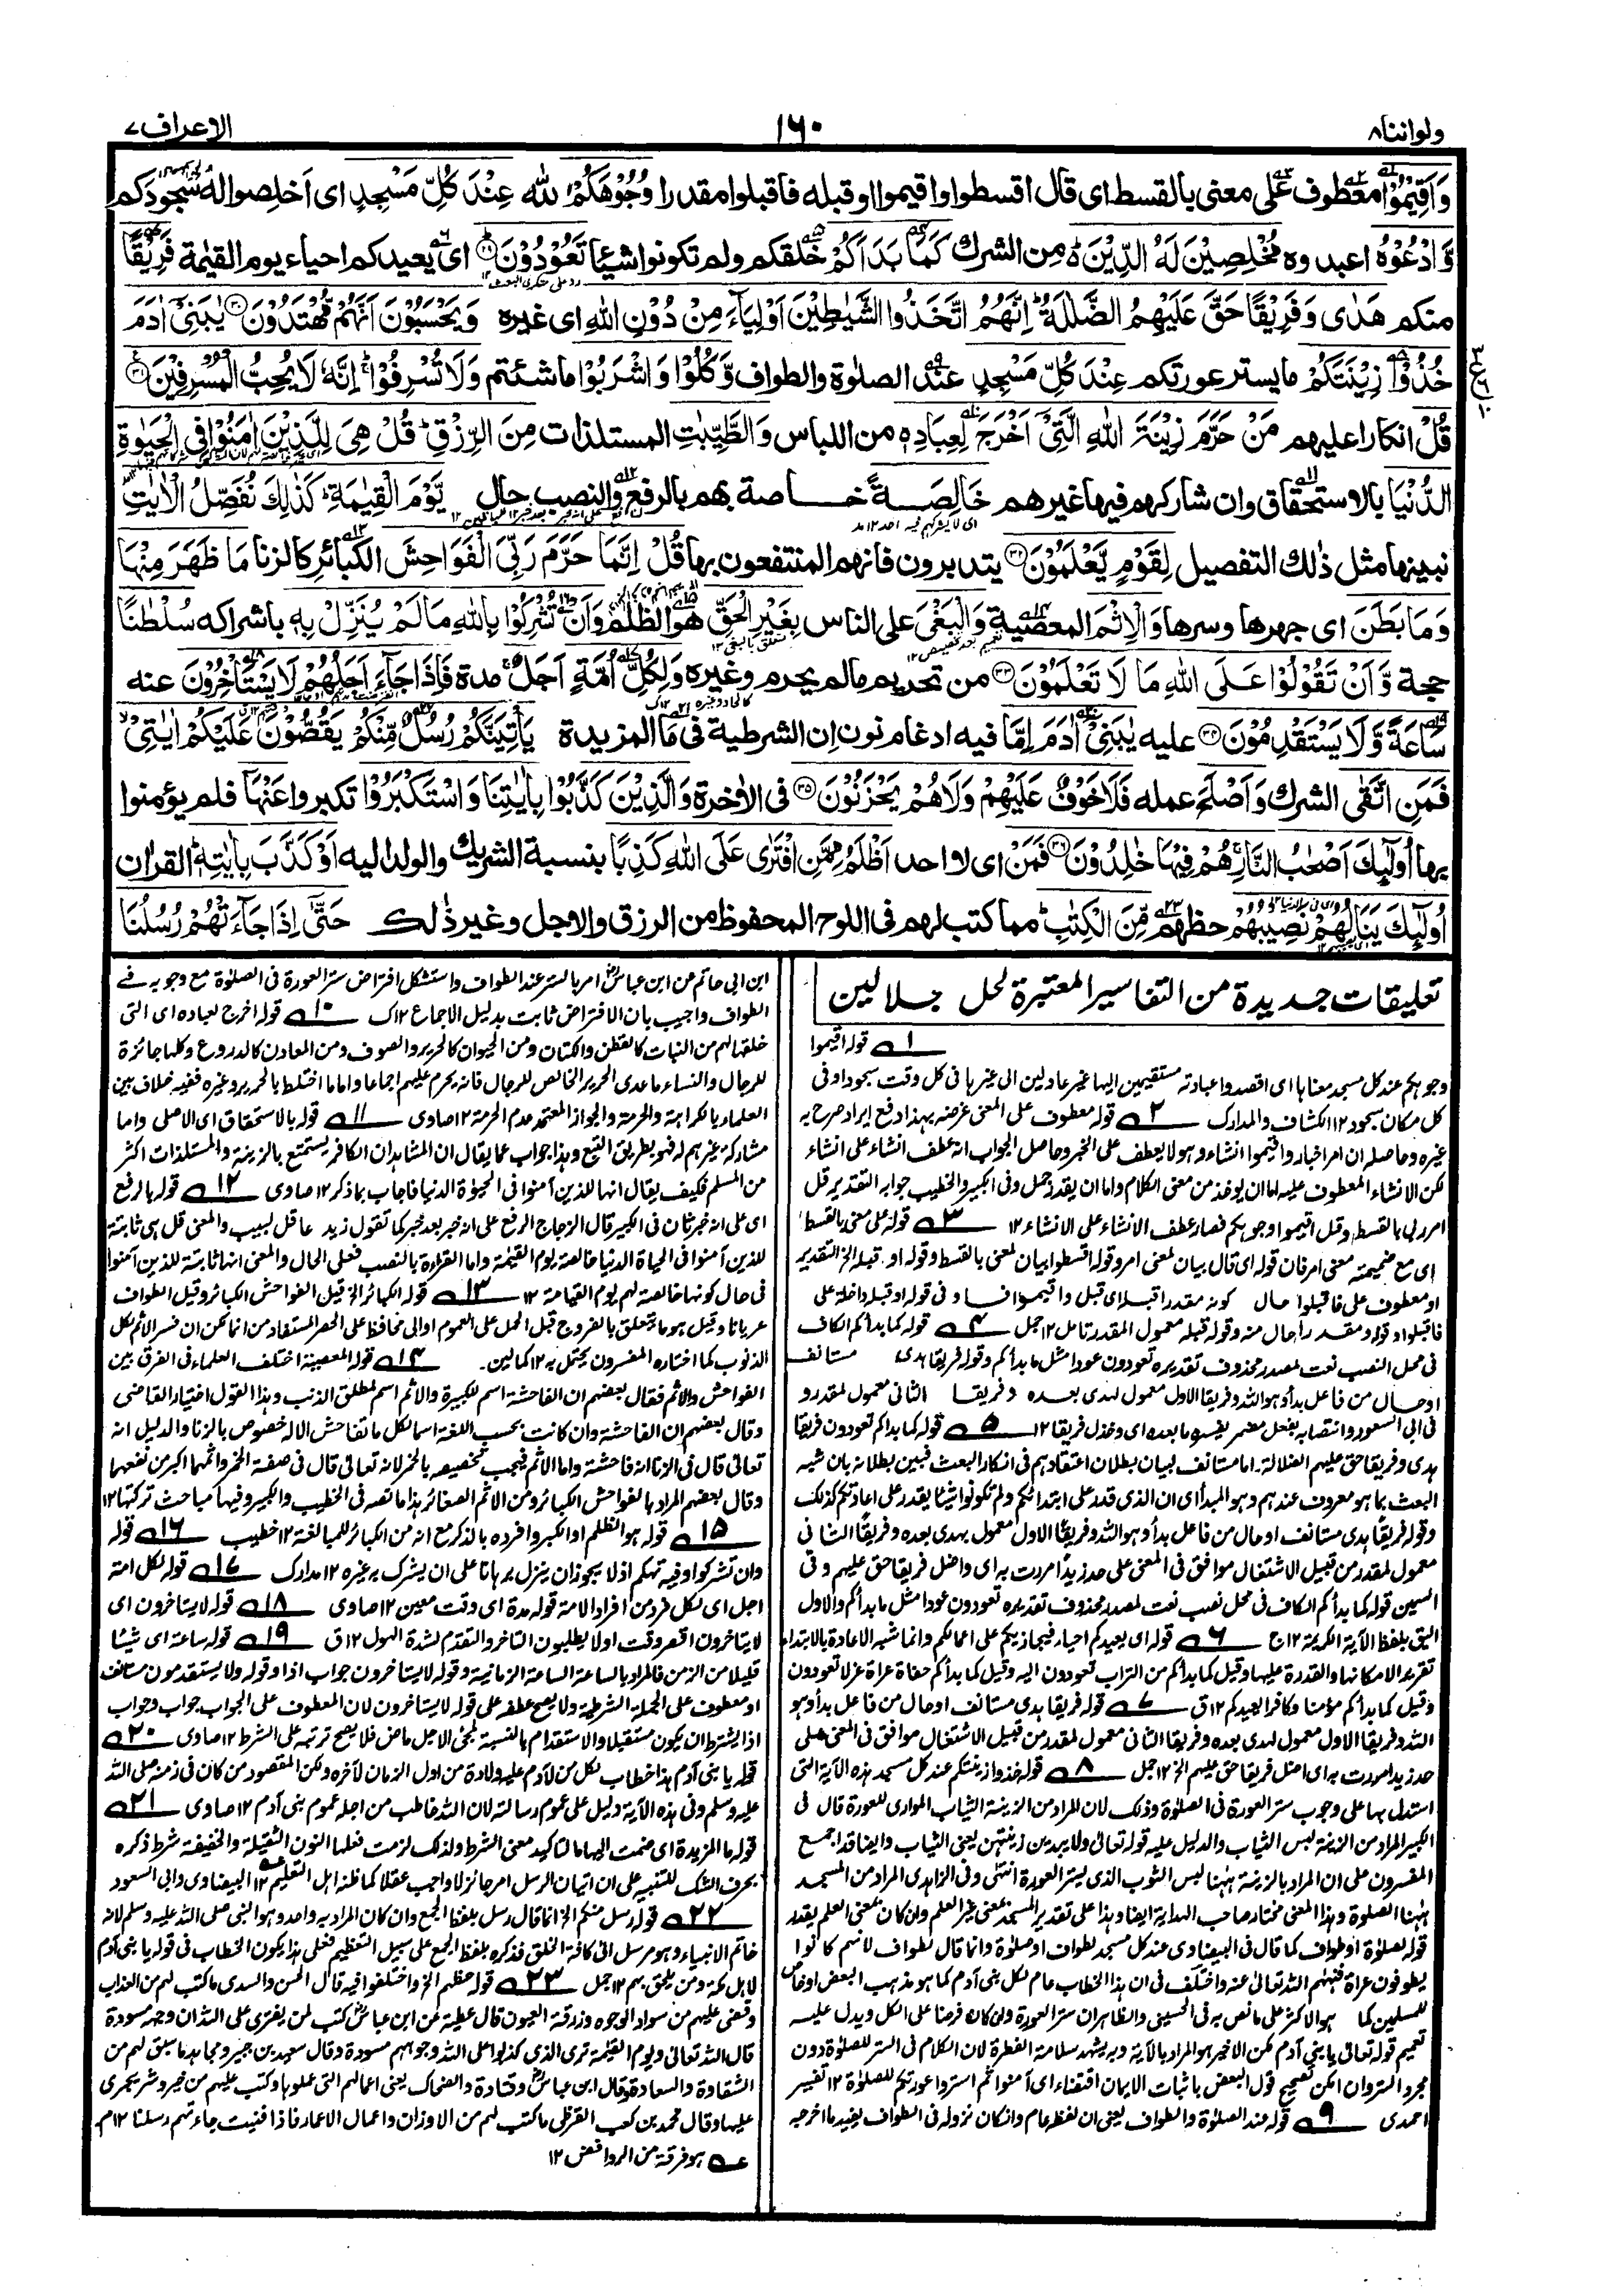 ولواننا٨
١٦٠
الاعراف٧
وَاَقِيْمُوْا معطوف على معنى بالقسط اى قال اقسطوا واقيموا او قبله فاقبلوا مقدرا وُجُوْهَكُمْ لله عِنْدَ كُلِّ مَسْجِدٍ اى اخلصوا له سجودكم
وَّادْعُوْهُ اعبدوه مُخْلِصِيْنَ لَهُ الدِّيْنَ ؕ من الشرك كَمَا بَدَاَكُمْ خلقكم ولم تكونوا شيئا تَعُوْدُوْنَ ۟ اى يعيدكم احياء يوم القيٰمة فَرِيْقًا
منكم هَدٰى وَفَرِيْقًا حَقَّ عَلَيْهِمُ الضَّلٰلَةُ ؕ اِنَّهُمُ اتَّخَذُوا الشَّيٰطِيْنَ اَوْلِيَآءَ مِنْ دُوْنِ اللّٰهِ اى غيره وَيَحْسَبُوْنَ اَنَّهُمْ مُّهْتَدُوْنَ ۳۰ يٰبَنِىْۤ اٰدَمَ
خُذُوْا زِيْنَتَكُمْ ما يستر عورتكم عِنْدَ كُلِّ مَسْجِدٍ عند الصلوة والطواف وَّكُلُوْا وَاشْرَبُوْا ما شئتم وَلَا تُسْرِفُوْا ؕ اِنَّهٗ لَا يُحِبُّ الْمُسْرِفِيْنَ ۳۱
قُلْ انكارا عليهم مَنْ حَرَّمَ زِيْنَةَ اللّٰهِ الَّتِىْۤ اَخْرَجَ لِعِبَادِهٖ من اللباس وَالطَّيِّبٰتِ المستلذات مِنَ الرِّزْقِ ؕ قُلْ هِىَ لِلَّذِيْنَ اٰمَنُوْا فِى الْحَيٰوةِ
الدُّنْيَا بالاستحقاق وان شاركهم فيها غيرهم خَالِصَةً خاصة بهم بالرفع والنصب حال يَّوْمَ الْقِيٰمَةِ ؕ كَذٰلِكَ نُفَصِّلُ الْاٰيٰتِ
نبينها مثل ذٰلك التفصيل لِقَوْمٍ يَّعْلَمُوْنَ ۳۲ يتدبرون فانهم المنتفعون بها قُلْ اِنَّمَا حَرَّمَ رَبِّىَ الْفَوَاحِشَ الكبائر كالزنا مَا ظَهَرَ مِنْهَا
وَمَا بَطَنَ اى جهرها وسرها وَالْاِثْمَ المعصية وَالْبَغْىَ على الناس بِغَيْرِ الْحَقِّ هو الظلم وَاَنْ تُشْرِكُوْا بِاللّٰهِ مَا لَمْ يُنَزِّلْ بِهٖ باشراكه سُلْطٰنًا
حجة وَّاَنْ تَقُوْلُوْا عَلَى اللّٰهِ مَا لَا تَعْلَمُوْنَ ۳۳ من تحريم مالم يحرم وغيره وَلِكُلِّ اُمَّةٍ اَجَلٌ ۚ مدة فَاِذَا جَآءَ اَجَلُهُمْ لَا يَسْتَاْخِرُوْنَ عنه
سَاعَةً وَّلَا يَسْتَقْدِمُوْنَ ۳۴ عليه يٰبَنِىْۤ اٰدَمَ اِمَّا فيه ادغام نون ان الشرطية فى ما المزيدة يَاْتِيَنَّكُمْ رُسُلٌ مِّنْكُمْ يَقُصُّوْنَ عَلَيْكُمْ اٰيٰتِىْ ۙ
فَمَنِ اتَّقٰى الشرك وَاَصْلَحَ عمله فَلَا خَوْفٌ عَلَيْهِمْ وَلَا هُمْ يَحْزَنُوْنَ ۳۵ فى الاٰخرة وَالَّذِيْنَ كَذَّبُوْا بِاٰيٰتِنَا وَاسْتَكْبَرُوْا تكبروا عَنْهَاۤ فلم يؤمنوا
بها اُولٰٓئِكَ اَصْحٰبُ النَّارِ ۚ هُمْ فِيْهَا خٰلِدُوْنَ ۳۶ فَمَنْ اى لا احد اَظْلَمُ مِمَّنِ افْتَرٰى عَلَى اللّٰهِ كَذِبًا بنسبة الشريك والولد اليه اَوْ كَذَّبَ بِاٰيٰتِهٖ ؕ القراٰن
اُولٰٓئِكَ يَنَالُهُمْ نَصِيْبُهُمْ حظهم مِّنَ الْكِتٰبِ ؕ مما كتب لهم فى اللوح المحفوظ من الرزق والاجل وغير ذٰلك حَتّٰۤى اِذَا جَآءَتْهُمْ رُسُلُنَا
تعليقات جديدة من التفاسير المعتبرة لحل جلالين
١ قوله اقيموا
وجوهكم عند كل مسجد معناها اى اقصدوا عبادته مستقيمين اليها غير عادلين الى غيرها فى كل وقت سجود او فى
كل مكان سجود ١٢ الكشاف والمدارك ٢ قوله معطوف على المعنى غرضه بهذا دفع ايراد صرح به
غيره وحاصله ان امر اخبار واقيموا انشاء وهو لا يعطف على الخبر وحاصل الجواب انه عطف انشاء على انشاء
لكن الانشاء المعطوف عليه اما ان يوخذ من معنى الكلام واما ان يقدر جمل وفى الكبير والخطيب جوابه التقدير قل
امر ربى بالقسط وقل اقيموا وجوهكم فصار عطف الانشاء على الانشاء ١٢ ٣ قوله على معنى بالقسط
اى مع ضميمته معنى امر فان قوله اى قال بيان لمعنى امر وقوله اقسطوا بيان لمعنى بالقسط وقوله او قبله الخ التقدير
او معطوف على فاقبلوا حال كونه مقدرا قبله اى قبل واقيموا
فى محل النصب نعت لمصدر محذوف تقديره تعودون عودا مثل ما بدأكم وقوله فريقا هدى مستانف
او حال من فاعل بدأ وهو الله وفريقا الاول معمول لهدى بعده وفريقا الثانى معمول لمقدر
فى ابى السعود وانتصابه بفعل مضمر يفسره ما بعده اى وخذل فريقا ١٢ ٥ قوله كما بدأكم تعودون فريقا
هدى وفريقا حق عليهم الضلالة اما مستانف لبيان بطلان اعتقادهم فى انكار البعث فبين بطلانه بان شبه
البعث بما هو معروف عندهم وهو المبدأ اى ان الذى قدر على ابتدائكم ولم تكونوا شيئا يقدر على اعادتكم كذلك
وقوله فريقا هدى مستانف او حال من فاعل بدأ وهو الله وفريقا الاول معمول بهدى بعده وفريقا الثانى
معمول لمقدر من قبيل الاشتغال موافق فى المعنى على حد زيدا مررت به اى واضل فريقا حق عليهم وفى
السمين قوله كما بدأكم الكاف فى محل نصب نعت لمصدر محذوف تقديره تعودون عودا مثل ما بدأكم والاول
اليق بلفظ الآية الكريمة ١٢ج ٦ قوله اى يعيدكم احياء فيجازيكم على اعمالكم وانما شبه الاعادة بالابتداء
تقريرا لامكانها والقدرة عليها وقيل كما بدأكم من التراب تعودون اليه وقيل كما بدأكم حفاة عراة غرلا تعودون
وقيل كما بدأكم مؤمنا وكافرا يعيدكم ١٢ق ٧ قوله فريقا هدى مستانف او حال من فاعل بدأ وهو
الله وفريقا الاول معمول لهدى بعده وفريقا الثانى معمول لمقدر من قبيل الاشتغال موافق فى المعنى على
حد زيدا مررت به اى اضل فريقا حق عليهم الخ ١٢ جمل ٨ قوله خذوا زينتكم عند كل مسجد هذه الآية التى
استدل بها على وجوب ستر العورة فى الصلوة وذلك لان المراد من الزينة الثياب الموارى للعورة قال فى
الكبير المراد من الزينة لبس الثياب والدليل عليه قوله تعالى ولا يبدين زينتهن يعنى الثياب وايضا قد اجمع
المفسرون على ان المراد بالزينة ههنا لبس الثوب الذى يستر العورة انتهى وفى الزاهدى المراد من المسجد
ههنا الصلوة وهذا المعنى مختار صاحب الهداية ايضا وهذا على تقدير المسجد بمعنى غير العلم وان كان بمعنى العلم يقدر
قوله لصلوة او طواف كما قال فى البيضاوى عند كل مسجد لطواف او صلوة وانما قال لطواف لانهم كانوا
يطوفون عراة فنهٰهم الله تعالى عنه واختلف فى ان هذا الخطاب عام لكل بنى آدم كما هو مذهب البعض او خاص
للمسلمين كما هو الاكثر على ما نص به فى الحسينى والظاهر ان ستر العورة وان كان فرضا على الكل ويدل عليه
تعميم قوله تعالى يا بنى آدم لكن الاخير هو المراد بالآية وبه يشهد سلامة الفطرة لان الكلام فى الستر للصلوة دون
مجرد الستر وان امكن تصحيح قول البعض باثبات الايمان اقتضاء اى آمنوا ثم استروا عورتكم للصلوة ١٢ تفسير
احمدى ٩ قوله عند الصلوة والطواف يعنى ان لفظه عام وان كان نزوله فى الطواف يفيد ما اخرجه
ابن ابى حاتم عن ابن عباس امر بالستر عند الطواف واستشكل افتراض ستر العورة فى الصلوة مع وجوبه فے
الطواف واجيب بان الافتراض ثابت بدليل الاجماع ١٢ك ١٠ قوله اخرج لعباده اى التى
خلقها لهم من النبات كالقطن والكتان ومن الحيوان كالحرير والصوف ومن المعادن كالدروع وكلها جائزة
للرجال والنساء ما عدى الحرير الخالص للرجال فانه يحرم عليهم اجماعا واما ما اختلط بالحرير وغيره ففيه خلاف بين
العلماء بالكراهة والحرمة والجواز المعتمد عدم الحرمة ١٢ صاوى ١١ قوله بالاستحقاق اى الاصلى واما
مشاركة غيرهم له فهو بطريق التبع وهذا جواب عما يقال ان المشاهد ان الكافر يستمتع بالزينة والمستلذات اكثر
من المسلم فكيف يقال انها للذين آمنوا فى الحيوة الدنيا فاجاب بما ذكر ١٢ صاوى ١٢ قوله بالرفع
اى على انه خبر ثان فى الكبير قال الزجاج الرفع على انه خبر بعد خبر كما تقول زيد عاقل لبيب والمعنى قل هى ثابتة
للذين آمنوا فى الحياة الدنيا خالصة يوم القيٰمة واما القراءة بالنصب فعلى الحال والمعنى انها ثابتة للذين آمنوا
فى حال كونها خالصة لهم يوم القيامة ١٢ ١٣ قوله الكبائر الخ قيل الفواحش الكبائر وقيل الطواف
عريانا وقيل هو ما يتعلق بالفروج قيل الحمل على العموم اولى محافظة على الحصر المستفاد من انما لكن ان فسر الاثم بكل
الذنوب كما اختاره المفسرون يحتمل به ١٢ كمالين ١٤ قوله المعصية اختلف العلماء فى الفرق بين
الفواحش والاثم فقال بعضهم ان الفاحشة اسم للكبيرة والاثم اسم لمطلق الذنب وهذا القول اختياره القاضى
وقال بعضهم ان الفاحشة وان كانت بحسب اللغة اسما لكل ما تفاحش الا انه مخصوص بالزنا والدليل انه
تعالى قال فى الزنا انه فاحشة واما الاثم فيجب تخصيصه بالخمر لانه تعالى قال فى صفة الخمر واثمهما اكبر من نفعهما
وقال بعضهم المراد بالفواحش الكبائر ومن الاثم الصغائر هذا ما نصه فى الخطيب والكبير وفيها مباحث تركتها ١٢
١٥ قوله هو الظلم او الكبر وافرده بالذكر مع انه من الكبائر للمبالغة ١٢ خطيب ١٦ قوله
وان تشركوا وفيه تهكم اذ لا يجوز ان ينزل برهانا على ان يشرك به غيره ١٢ مدارك ١٧ قوله لكل امة
اجل اى لكل فرد من افراد الامة قوله مدة اى وقت معين ١٢ صاوى ١٨ قوله لا يستاخرون اى
لا يتاخرون اقصر وقت او لا يطلبون التاخر والتقدم لشدة الهول ١٢ق ١٩ قوله ساعة اى شيئا
قليلا من الزمن فالمراد بالساعة الساعة الزمانية وقوله لا يستاخرون جواب اذا وقوله ولا يستقدمون مستانف
او معطوف على الجملة الشرطية ولا يصح عطفه على قوله لا يستاخرون لان المعطوف على الجواب جواب وجواب
اذا يشترط ان يكون مستقبلا والاستقدام بالنسبة لمجئ الاجل ماض فلا يصح ترتبه على الشرط ١٢ صاوى ٢٠
قوله يا بنى آدم هذا خطاب لكل من لآدم عليه ولادة من اول الزمان لآخره ولكن المقصود من كان فى زمنه صلى الله
عليه وسلم وفى هذه الآية دليل على عموم رسالته لان الله خاطب من اجله عموم بنى آدم ١٢ صاوى ٢١
قوله ما المزيدة اى ضمت اليها ما لتاكيد معنى الشرط ولذلك لزمت فعلها النون الثقيلة والخفيفة شرط ذكره
بحرف الشك للتنبيه على ان اتيان الرسل امر جائز لا واجب عقلا كما ظنه اهل التعليم ١٢ البيضاوى وابى السعود
٢٢ قوله رسل منكم الخ انما قال رسل بلفظ الجمع وان كان المراد به واحد وهو النبى صلى الله عليه وسلم لانه
خاتم الانبياء وهو مرسل الى كافة الخلق فذكره بلفظ الجمع على سبيل التعظيم فعلى هذا يكون الخطاب فى قوله يا بنى آدم
لاهل مكة ومن يلحق بهم ١٢ جمل ٢٣ قوله حظهم الخ واختلفوا فيه قال الحسن والسدى ما كتب لهم من العذاب
وقضى عليهم من سواد الوجوه وزرقة العيون قال عطية عن ابن عباس كتب لمن يفترى على الله ان وجهه مسودة
قال الله تعالى ويوم القيٰمة ترى الذين كذبوا على الله وجوههم مسودة وقال سعيد بن جبير ومجاهد ما سبق لهم من
الشقاوة والسعادة وقال ابن عباس وقتادة والضحاك يعنى اعمالهم التى عملوها وكتب عليهم من خير وشر يجرى
عليها وقال محمد بن كعب القرظى ما كتب لهم من الارزاق واعمال الاعمار فاذا فنيت جاءتهم رسلنا ١٢م
عه هو فرقة من الروافض ١٢